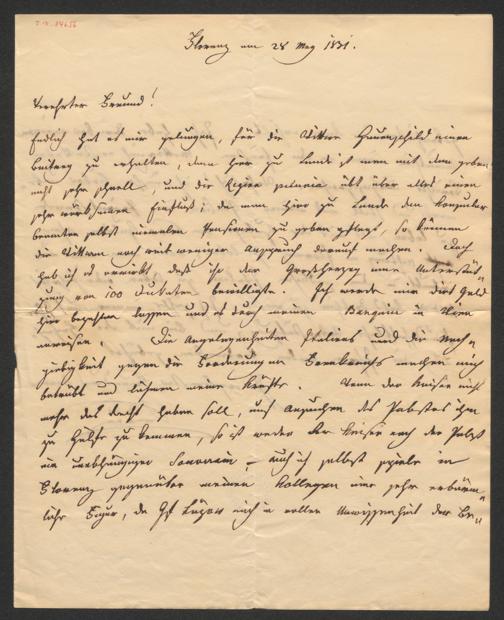 I.N. 84656
Florenz am 28 May 1831.
Verehrter Freund!
Endlich hat es mir gelungen, für die Wittwe Hauenschild einen
Beitrag zu erhalten, denn hier zu Lande ist man mit dem geben
nicht sehr schnell, und die Regina pecunia übt über alles einen
sehr wirksamen Einfluß; da man hier zu Lande den Konsular
beamten selbst niemalen Pensionen zu geben pflegt, so können
die Wittwen noch viel weniger Anspruch darauf machen. Doch
hab ich es erwirkt daß ihr der Großherzog eine Unterstü„
zung von 100 Dukaten bewilligte. Ich werde mir dieß Geld
hier bezahlen lassen und es durch meinen Banquier in Wien
anweisen. Die Angelegenheiten Italiens und die Nach„
giebigkeit gegen die Forderungen Frankreichs machen mich
betrübt und lähmen meine Kräfte. Wenn der Kaiser nicht
mehr das Recht haben soll, auf Ansuchen des Pabstes ihm
zu Hülfe zu kommen, so ist weder der Kaiser noch der Pabst
ein unabhängiger Souverain – auch ich selbst spiele in
Florenz gegenüber meinen Kollegen eine sehr erbärm„
liche Figur, da Gf Lüzow mich in voller Unwissenheit der Be„